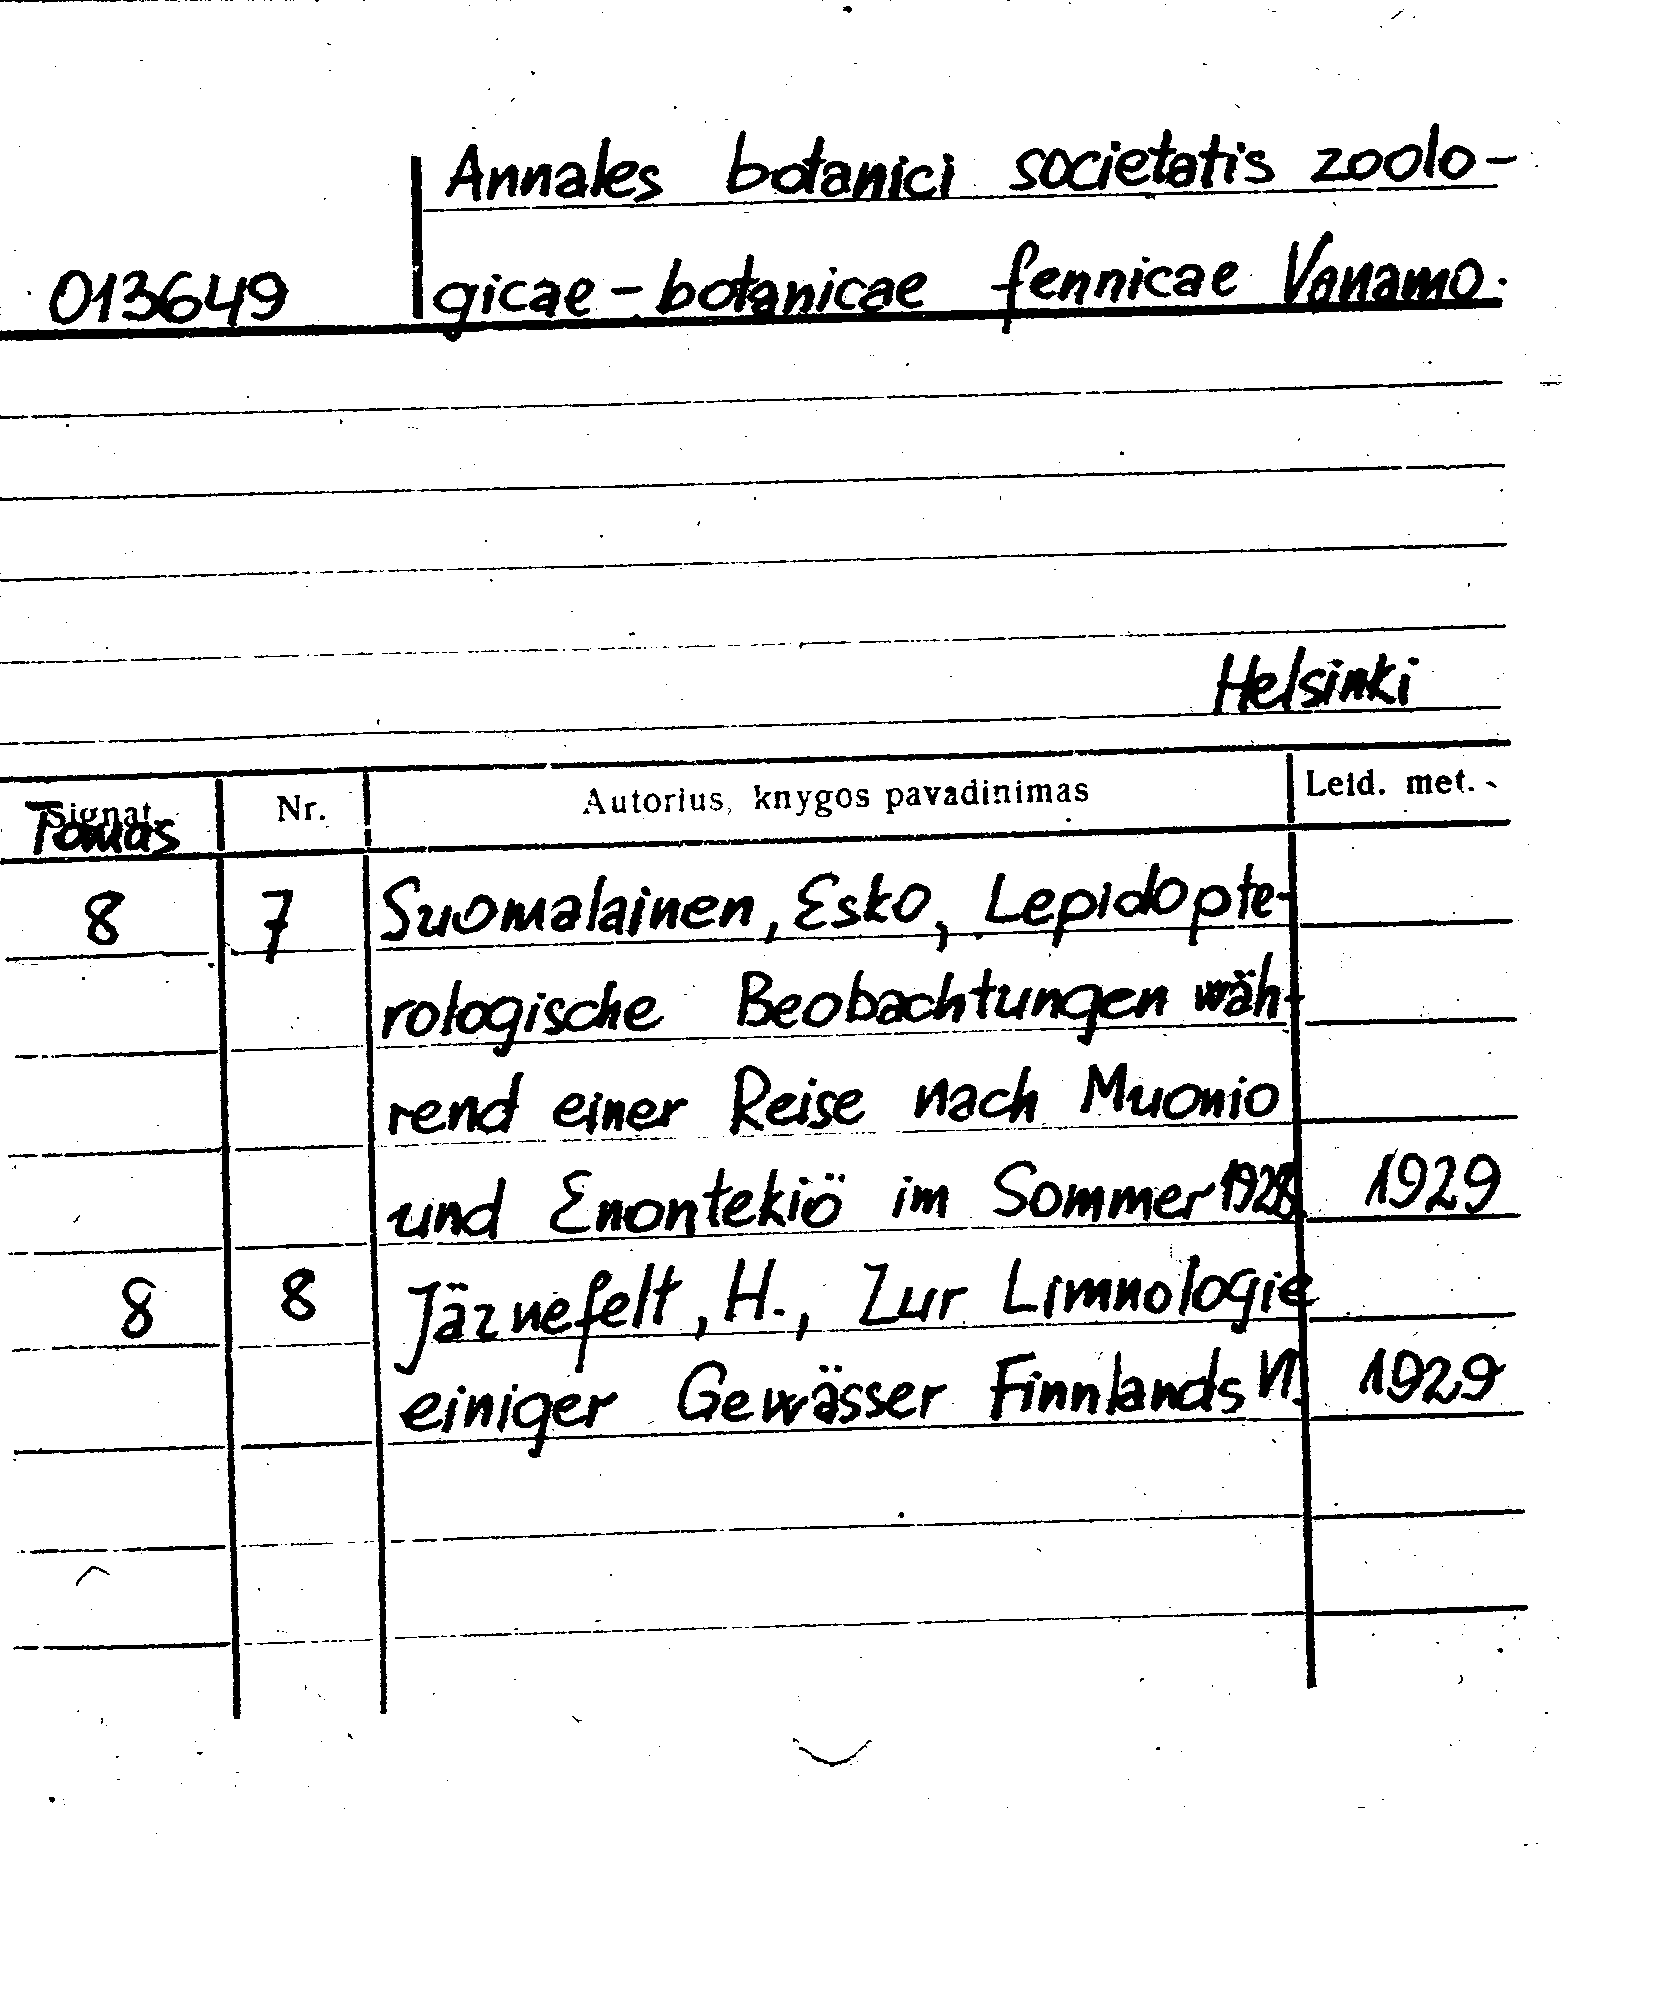 Annales botanici societatis zoolo-
013649 gicae-botanicae fennicae Vanamo.
Helsinki
Signat. Nr. Autorius, knygos pavadinimas Leid. met.
Tomas
8 7 Suomalainen, Esko, Lepidopte-
rologische Beobachtungen wäh-
rend einer Reise nach Muonio
und Enontekiö im Sommer 1928. 1929
8 8 Järnefelt, H., Zur Limnologie
einiger Gewässer Finnlands VI. 1929